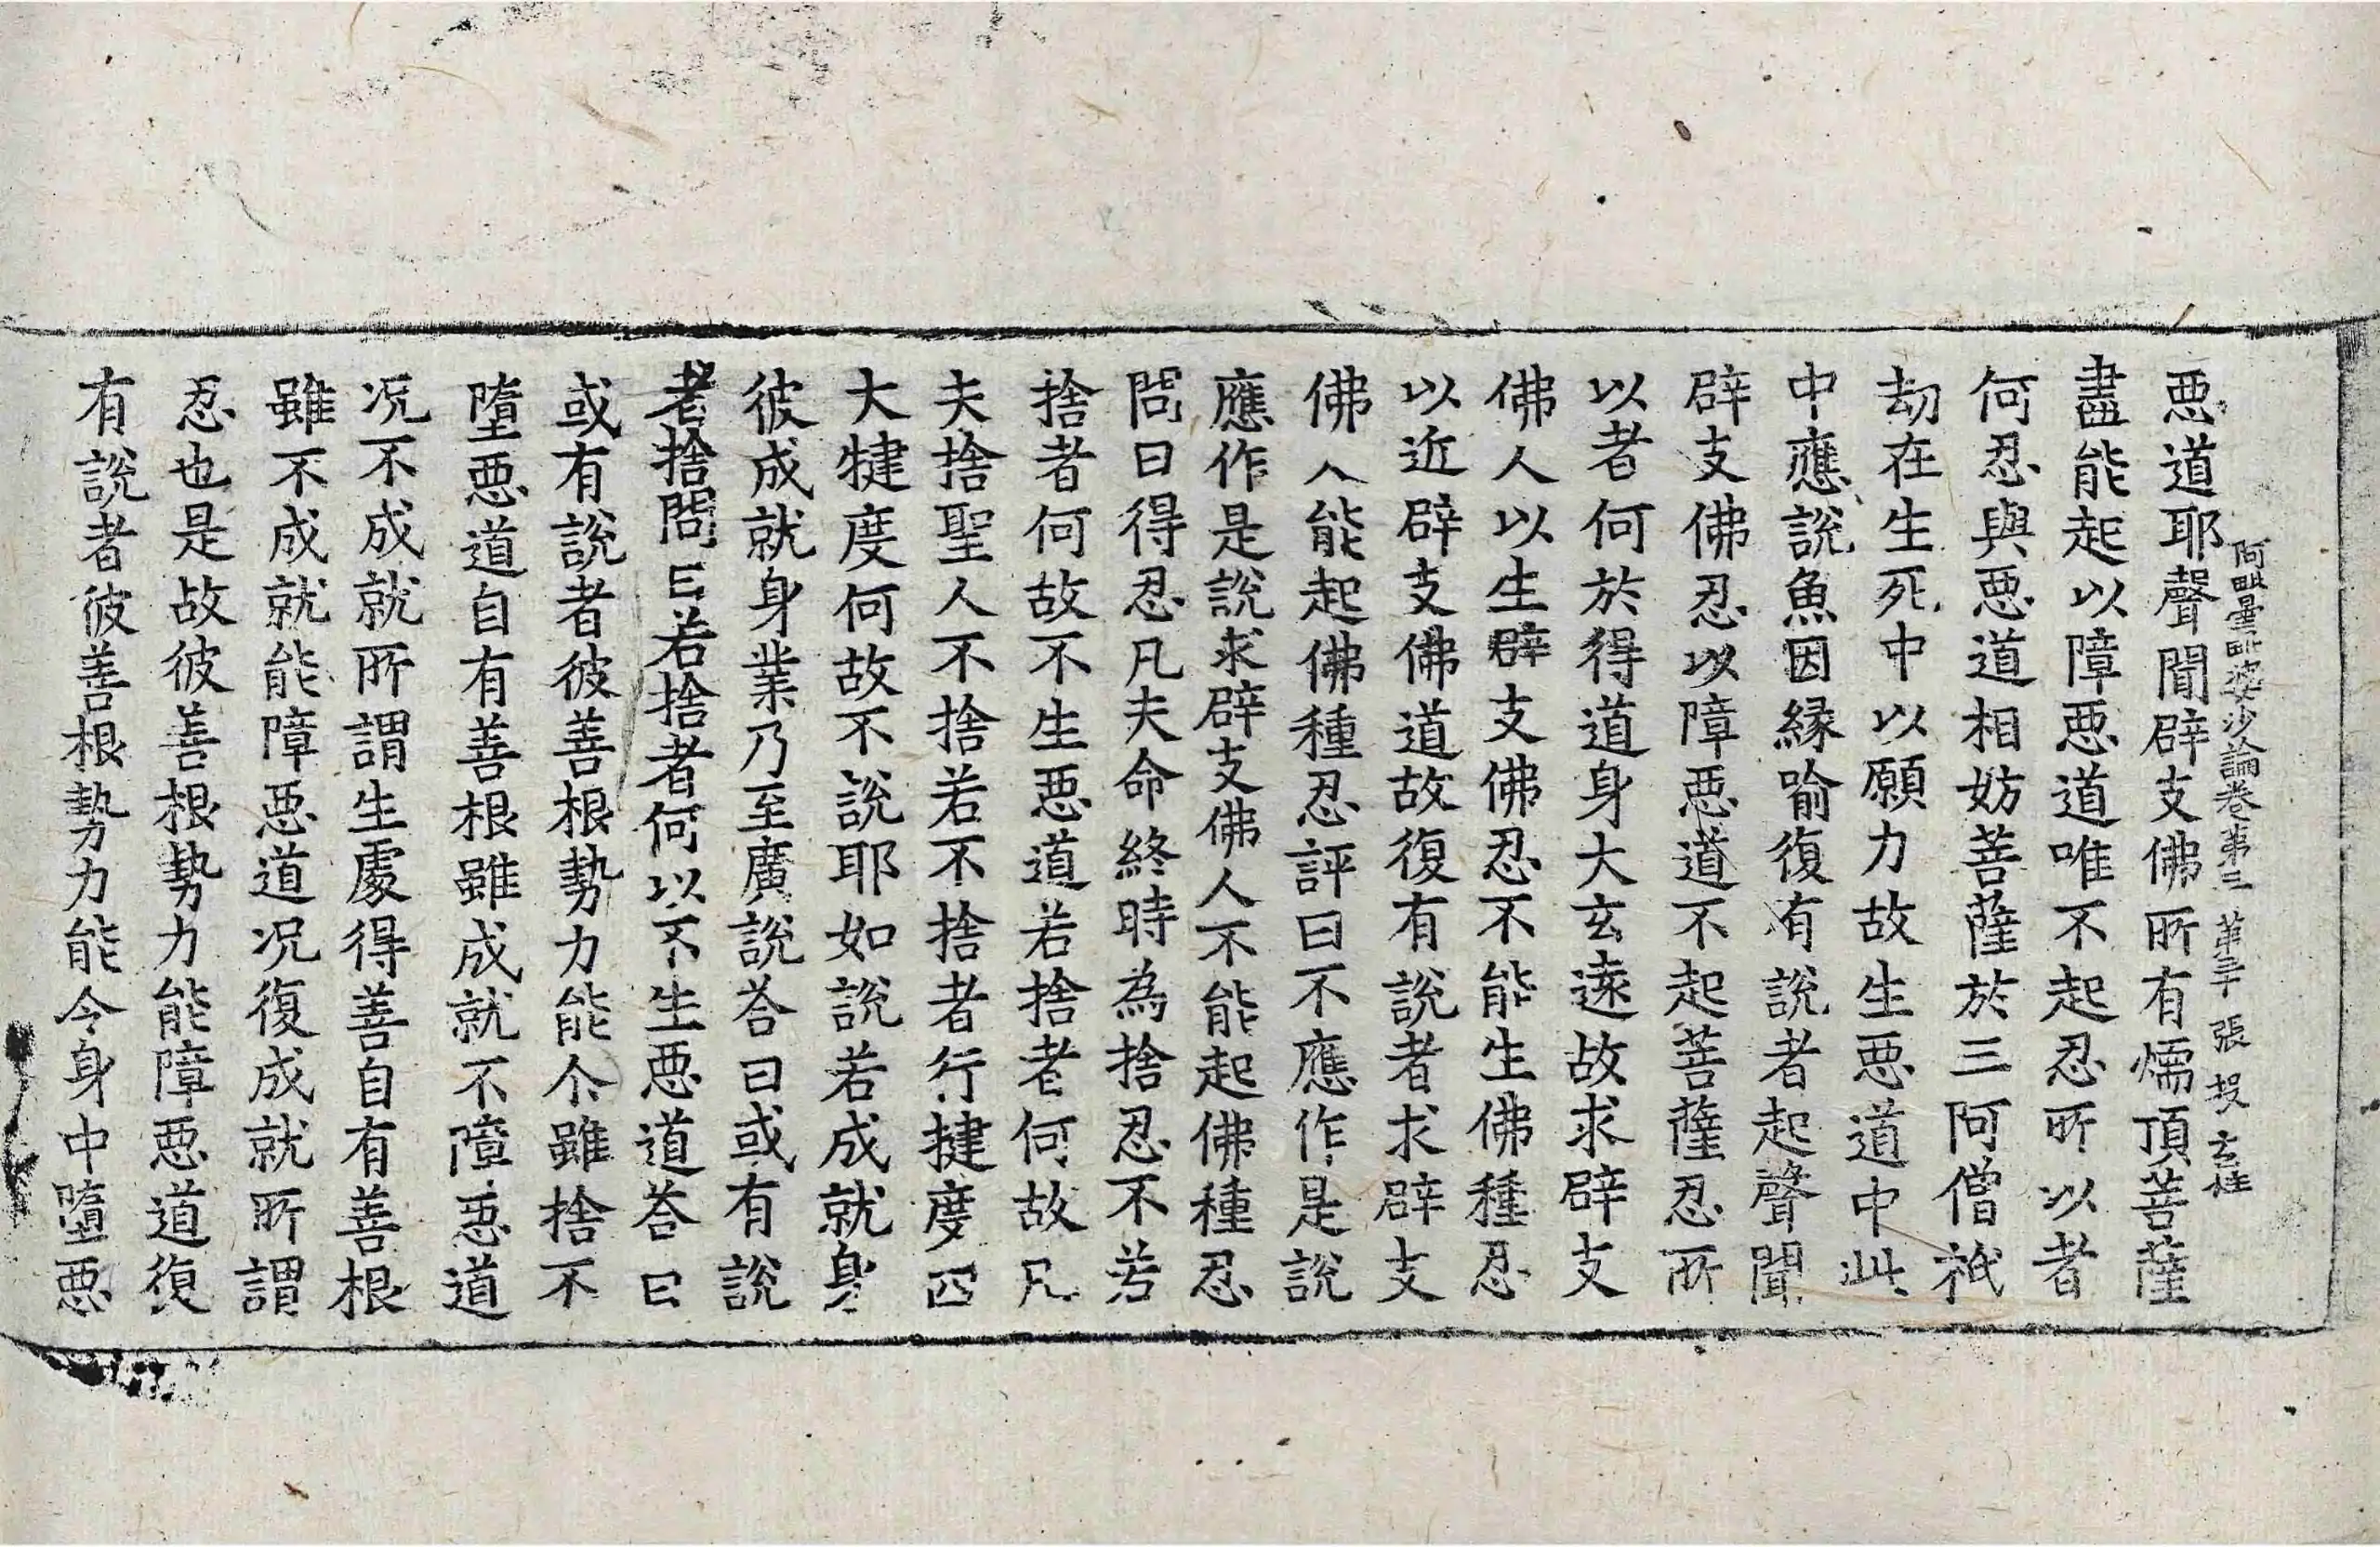 惡道耶聲聞辟支佛所有煗頂菩薩
阿毗曇毗婆沙論卷第三 第三十 張 投 玄桂
盡能起以障惡道唯不起忍所以者
何忍與惡道相妨菩薩於三阿僧祇
劫在生死中以願力故生惡道中此
中應說魚因緣喻復有說者起聲聞
辟支佛忍以障惡道不起菩薩忍所
以者何於得道身大玄遠故求辟支
佛人以生辟支佛忍不能生佛種忍
以近辟支佛道故復有說者求辟支
佛人能起佛種忍評曰不應作是說
應作是說求辟支佛人不能起佛種忍
問曰得忍凡夫命終時為捨忍不若
捨者何故不生惡道若捨者何故凡
夫捨聖人不捨若不捨者行揵度四
大犍度何故不說耶如說若成就身
彼成就身業乃至廣說荅曰或有說
者捨問曰若捨者何以不生惡道荅曰
或有說者彼善根勢力能尒雖捨不
墮惡道自有善根雖成就不障惡道
况不成就所謂生處得善自有善根
雖不成就能障惡道况復成就所謂
忍也是故彼善根勢力能障惡道復
有說者彼善根勢力能令身中墮惡